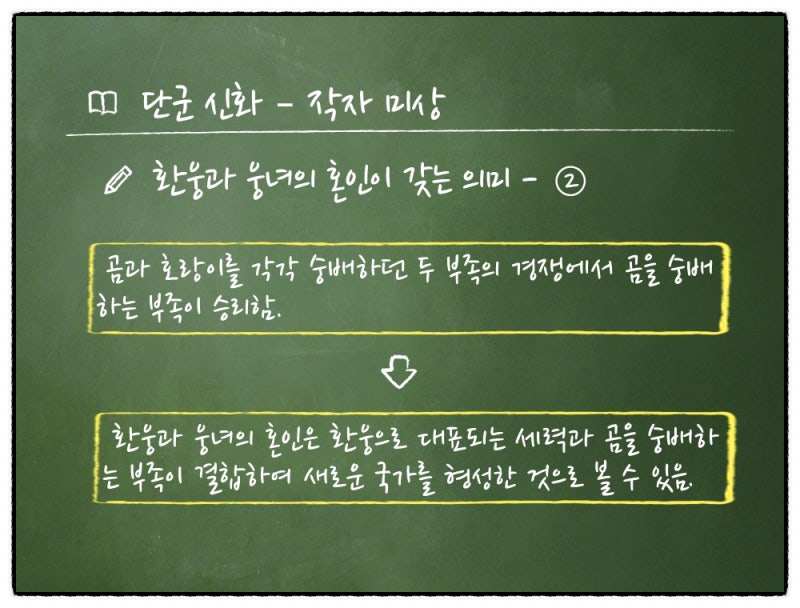 단군 신화 - 작자 미상
환웅과 웅녀의 혼인이 갖는 의미 - ②
곰과 호랑이를 각각 숭배하던 두 부족의 경쟁에서 곰을 숭배
하는 부족이 승리함.
환웅과 웅녀의 혼인은 환웅으로 대표되는 세력과 곰을 숭배하
는 부족이 결합하여 새로운 국가를 형성한 것으로 볼 수 있음.